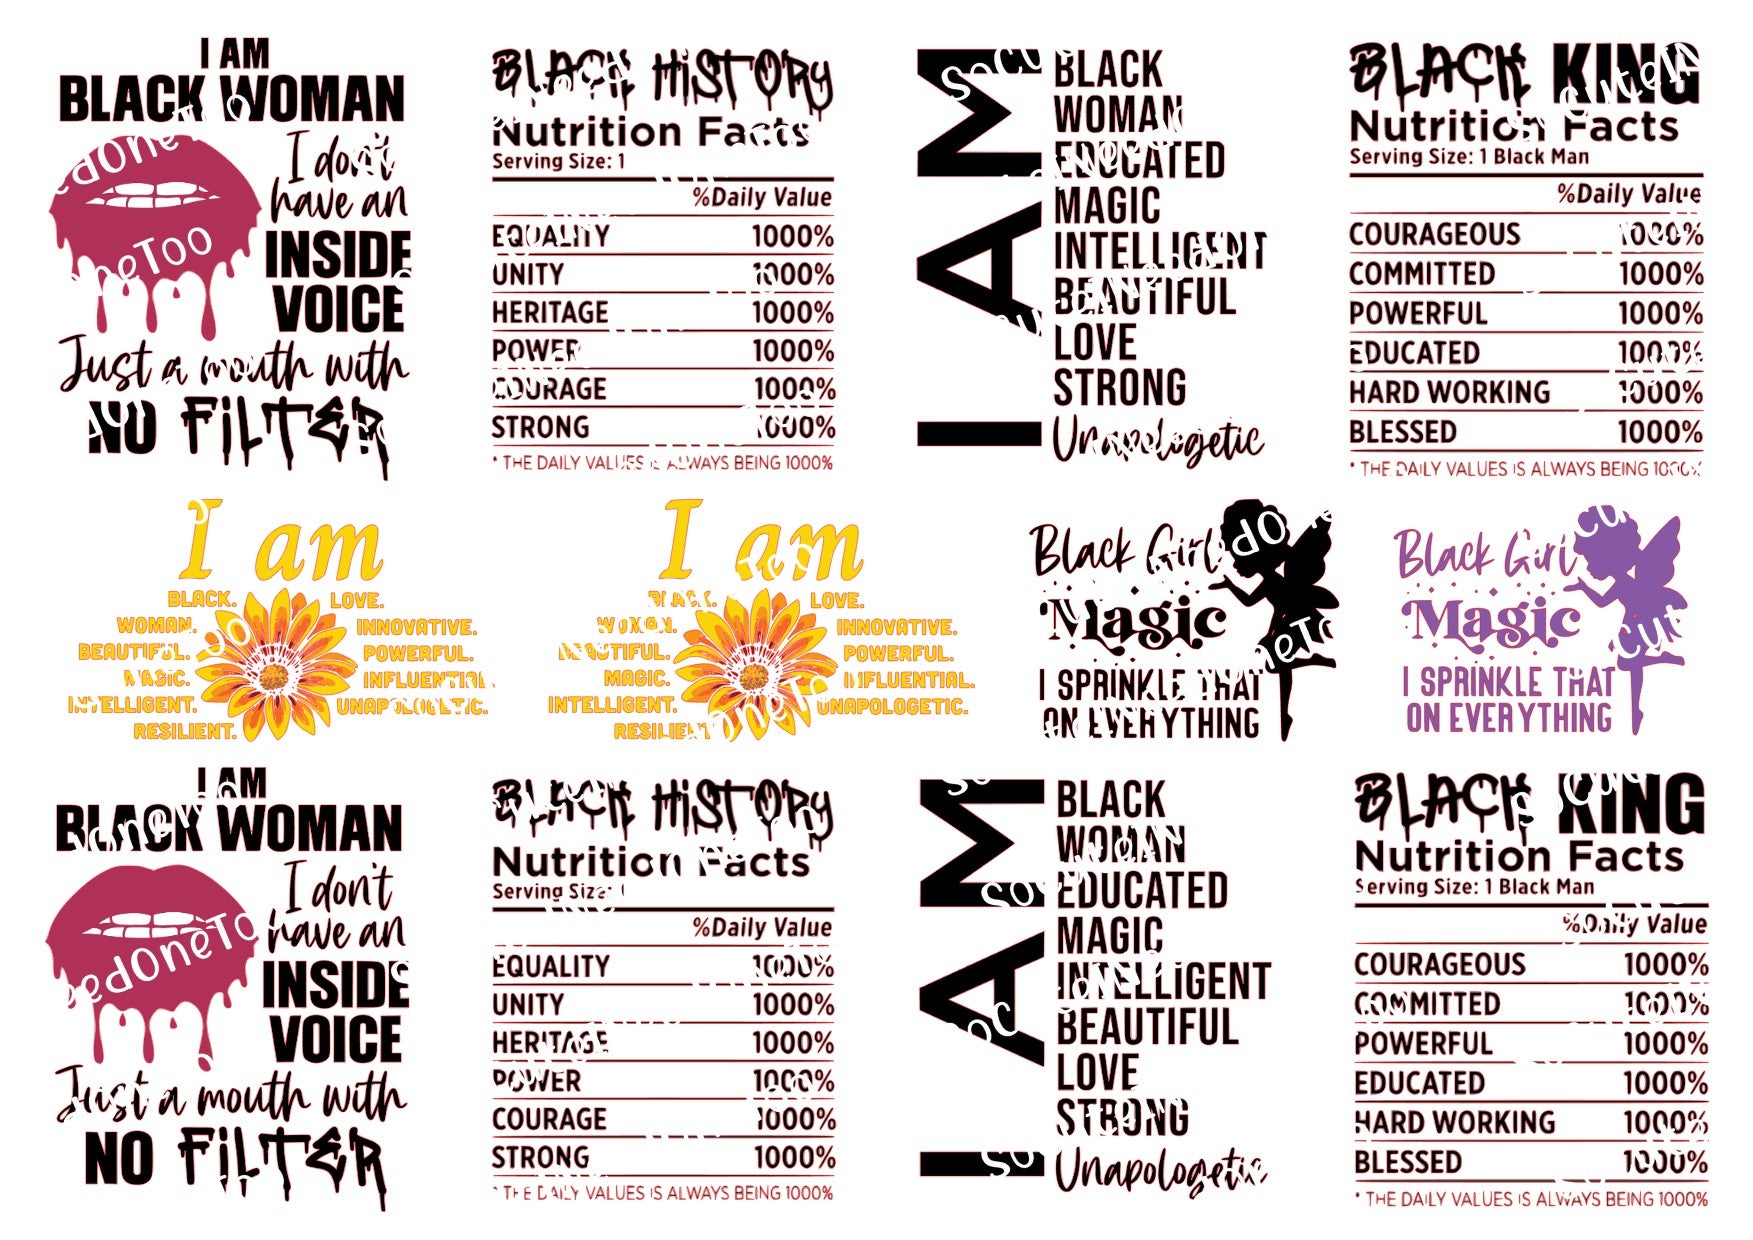 I AM
BLACK WOMAN
I don't
have an
INSIDE
VOICE
Just a mouth with
NO FILTER
BLACK HISTORY
Nutrition Facts
Serving Size: 1
%Daily Value
EQUALITY 1000%
UNITY 1000%
HERITAGE 1000%
POWER 1000%
COURAGE 1000%
STRONG 1000%
* THE DAILY VALUES IS ALWAYS BEING 1000%
I AM
BLACK
WOMAN
EDUCATED
MAGIC
INTELLIGENT
BEAUTIFUL
LOVE
STRONG
Unapologetic
BLACK KING
Nutrition Facts
Serving Size: 1 Black Man
%Daily Value
COURAGEOUS 1000%
COMMITTED 1000%
POWERFUL 1000%
EDUCATED 1000%
HARD WORKING 1000%
BLESSED 1000%
* THE DAILY VALUES IS ALWAYS BEING 1000%
I am
BLACK. LOVE.
WOMAN. INNOVATIVE.
BEAUTIFUL. POWERFUL.
MAGIC. INFLUENTIAL.
INTELLIGENT. UNAPOLOGETIC.
RESILIENT.
I am
BLACK. LOVE.
WOMAN. INNOVATIVE.
BEAUTIFUL. POWERFUL.
MAGIC. INFLUENTIAL.
INTELLIGENT. UNAPOLOGETIC.
RESILIENT.
Black Girl
Magic
I SPRINKLE THAT
ON EVERYTHING
Black Girl
Magic
I SPRINKLE THAT
ON EVERYTHING
I AM
BLACK WOMAN
I don't
have an
INSIDE
VOICE
Just a mouth with
NO FILTER
BLACK HISTORY
Nutrition Facts
Serving Size: 1
%Daily Value
EQUALITY 1000%
UNITY 1000%
HERITAGE 1000%
POWER 1000%
COURAGE 1000%
STRONG 1000%
* THE DAILY VALUES IS ALWAYS BEING 1000%
I AM
BLACK
WOMAN
EDUCATED
MAGIC
INTELLIGENT
BEAUTIFUL
LOVE
STRONG
Unapologetic
BLACK KING
Nutrition Facts
Serving Size: 1 Black Man
%Daily Value
COURAGEOUS 1000%
COMMITTED 1000%
POWERFUL 1000%
EDUCATED 1000%
HARD WORKING 1000%
BLESSED 1000%
* THE DAILY VALUES IS ALWAYS BEING 1000%